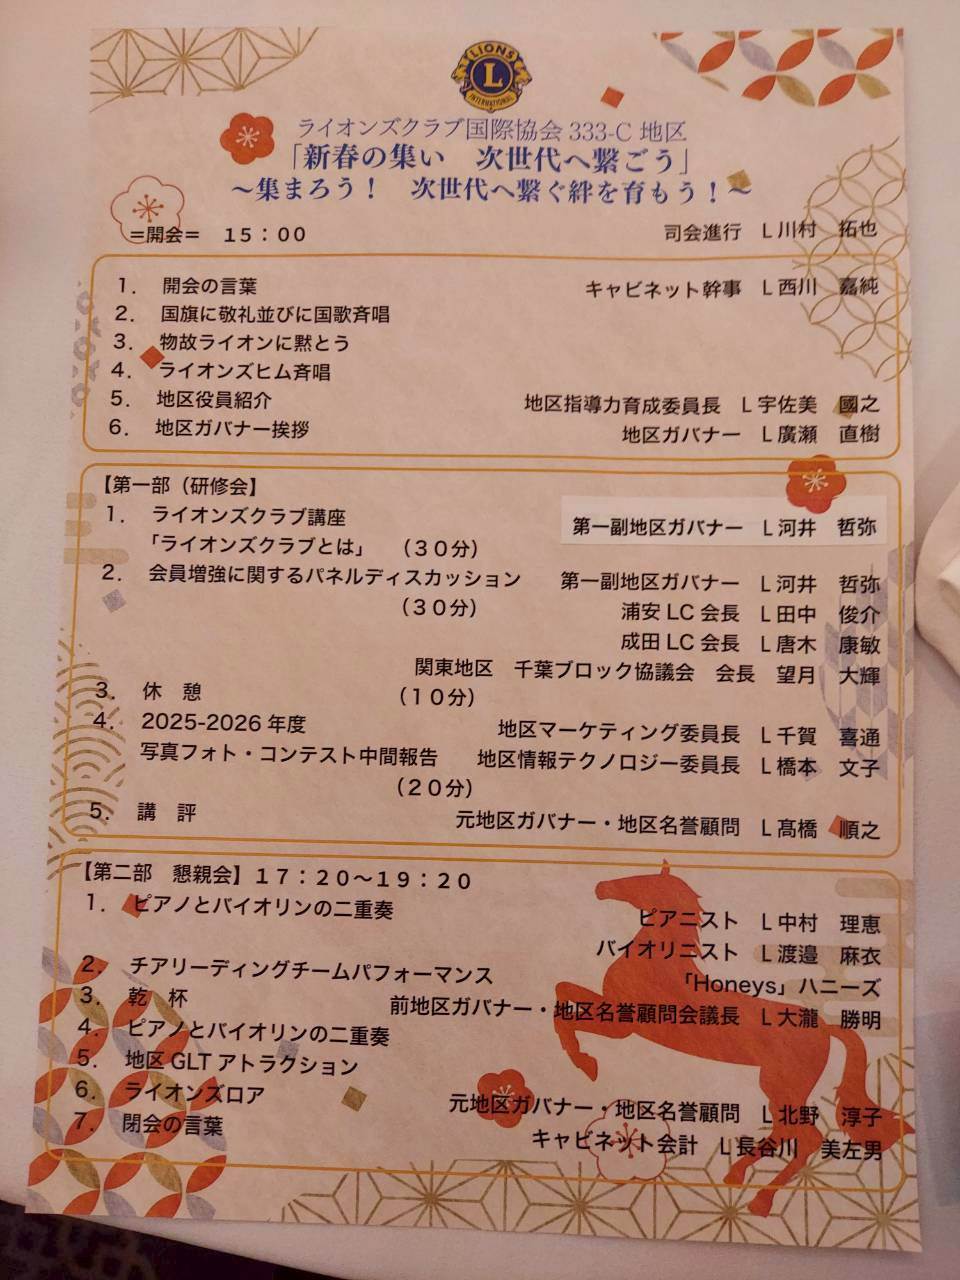 LIONS
L
INTERNATIONAL
ライオンズクラブ国際協会 333-C 地区
「新春の集い　次世代へ繋ごう」
～集まろう！　次世代へ繋ぐ絆を育もう！～
=開会=　１５：００　司会進行　L 川村　拓也
1.　開会の言葉　キャビネット幹事　L 西川　嘉純
2.　国旗に敬礼並びに国歌斉唱
3.　物故ライオンに黙とう
4.　ライオンズヒム斉唱
5.　地区役員紹介　地区指導力育成委員長　L 宇佐美　國之
6.　地区ガバナー挨拶　地区ガバナー　L 廣瀬　直樹
【第一部（研修会】
1.　ライオンズクラブ講座　第一副地区ガバナー　L 河井　哲弥
「ライオンズクラブとは」　（３０分）
2.　会員増強に関するパネルディスカッション　第一副地区ガバナー　L 河井　哲弥
（３０分）　浦安 LC 会長　L 田中　俊介
成田 LC 会長　L 唐木　康敏
関東地区　千葉ブロック協議会　会長　望月　大輝
3.　休　憩　（１０分）
4.　2025-2026 年度　地区マーケティング委員長　L 千賀　喜通
写真フォト・コンテスト中間報告　地区情報テクノロジー委員長　L 橋本　文子
（２０分）
5.　講　評　元地区ガバナー・地区名誉顧問　L 髙橋　順之
【第二部　懇親会】１７：２０～１９：２０
1.　ピアノとバイオリンの二重奏　ピアニスト　L 中村　理恵
バイオリニスト　L 渡邉　麻衣
2.　チアリーディングチームパフォーマンス　「Honeys」ハニーズ
3.　乾　杯　前地区ガバナー・地区名誉顧問会議長　L 大瀧　勝明
4.　ピアノとバイオリンの二重奏
5.　地区 GLT アトラクション
6.　ライオンズロア　元地区ガバナー・地区名誉顧問　L 北野　淳子
7.　閉会の言葉　キャビネット会計　L 長谷川　美左男